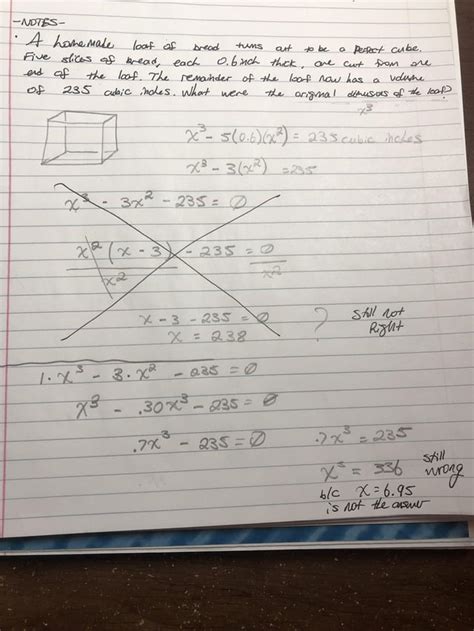 -NOTES-
· A homemade loaf of bread turns out to be a perfect cube.
Five slices of bread, each 0.6 inch thick, are cut from one
end of the loaf. The remainder of the loaf now has a volume
of 235 cubic inches. What were the original dimensions of the loaf?
x³
x³ - 5(0.6)(x²) = 235 cubic inches
x³ - 3(x²) = 235
x³ - 3x² - 235 = 0
x²(x - 3) - 235 = 0
x² x²
x - 3 - 235 = 0
x = 238
? Still not
Right
1·x³ - 3·x² - 235 = 0
x³ - .30x³ - 235 = 0
.7x³ - 235 = 0 .7x³ = 235
x³ = 336 still
wrong
b/c x = 6.95
is not the answer